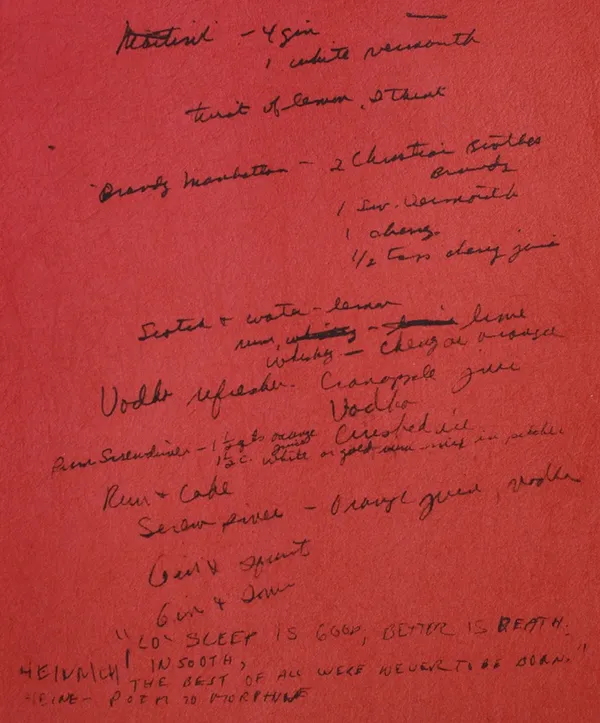 Martini - 4 gin
1 white vermouth
twist of lemon, I think
Brandy Manhattan - 2 Christian Brothers
Brandy
1 Sw. Vermouth
1 cherry
1/2 tsps cherry juice
Scotch & water - lemon
rum, whiskey - lime
whiskey - cherry or orange
Vodka refresher. Cranapple juice
Vodka
Crushed ice
Rum Screwdriver - 1 1/2 qts orange juice
1 1/2 c. white or gold rum - mix in pitcher
Rum & Coke
Screw driver - Orange juice, vodka
Gin & Squirt
Gin &
"LO' SLEEP IS GOOD, BETTER IS DEATH;
IN SOOTH,
THE BEST OF ALL WERE NEVER TO BE BORN."
HEINRICH
HEINE - POEM TO MORPHINE